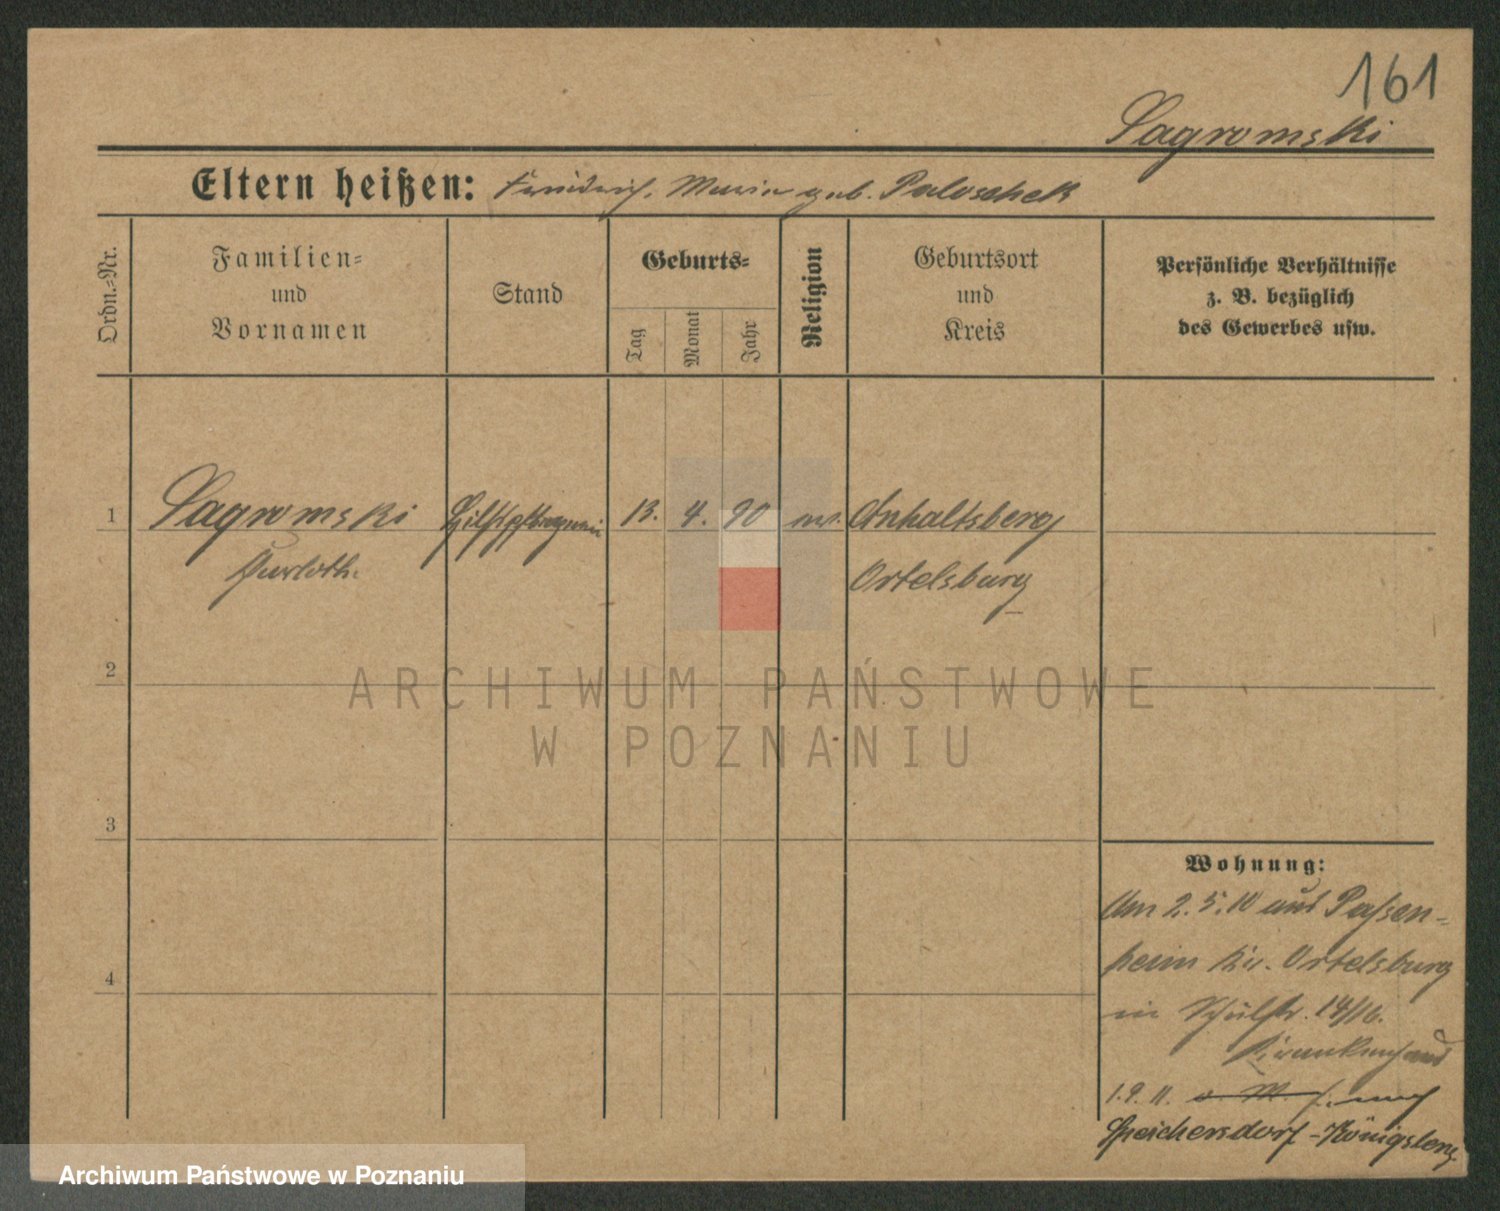 161
Sagromski
Eltern heißen: Friedrich, Marie geb. Paloschek
Ordn.-Nr.
Familien-
und
Vornamen
Stand
Geburts-
Tag
Monat
Jahr
Religion
Geburtsort
und
Kreis
Persönliche Verhältnisse
z. B. bezüglich
des Gewerbes usw.
1 Sagromski 13. 4. 90 Anhaltsberg
Ortelsburg
2
ARCHIWUM PAŃSTWOWE
W POZNANIU
3
Wohnung:
Am 2.5.10 aus Passen-
heim Kr. Ortelsburg
4
in Schulstr. 14/16.
Krankenhaus
1.9.11. nach
Speichersdorf-Königsberg
Archiwum Państwowe w Poznaniu